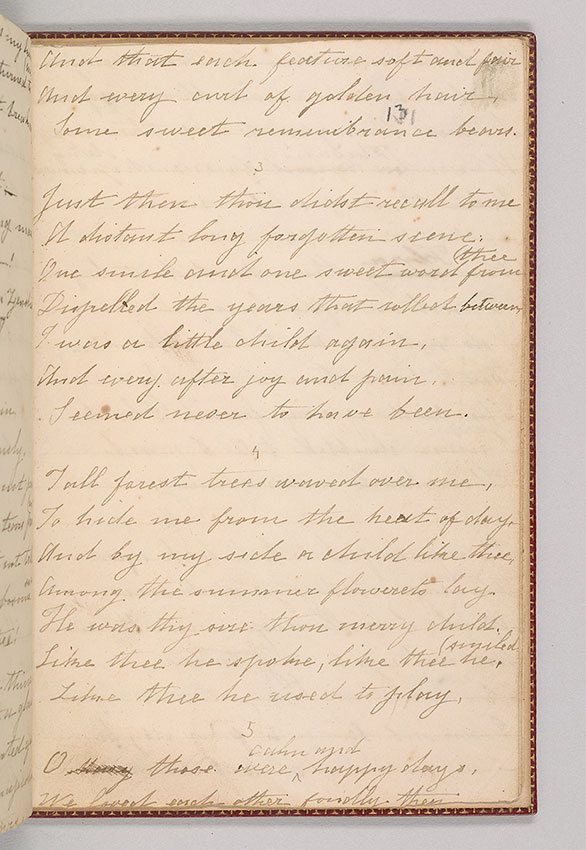 And that each feature soft and fair
And every curl of golden hair,
131
Some sweet remembrance bears.
3
Just then thou didst recall to me
A distant long forgotten scene,
One smile and one sweet word from
(thee
Dispelled the years that rolled between
I was a little child again,
And every after joy and pain,
Seemed never to have been.
4
Tall forest trees waved over me,
To hide me from the heat of day,
And by my side a child like thee,
Among the summer flowerets lay.
He was thy sire thou merry child.
Like thee he spoke, like thee he
(smiled,
Like thee he used to play,
5
O those were calm and happy days,
We loved each other fondly then